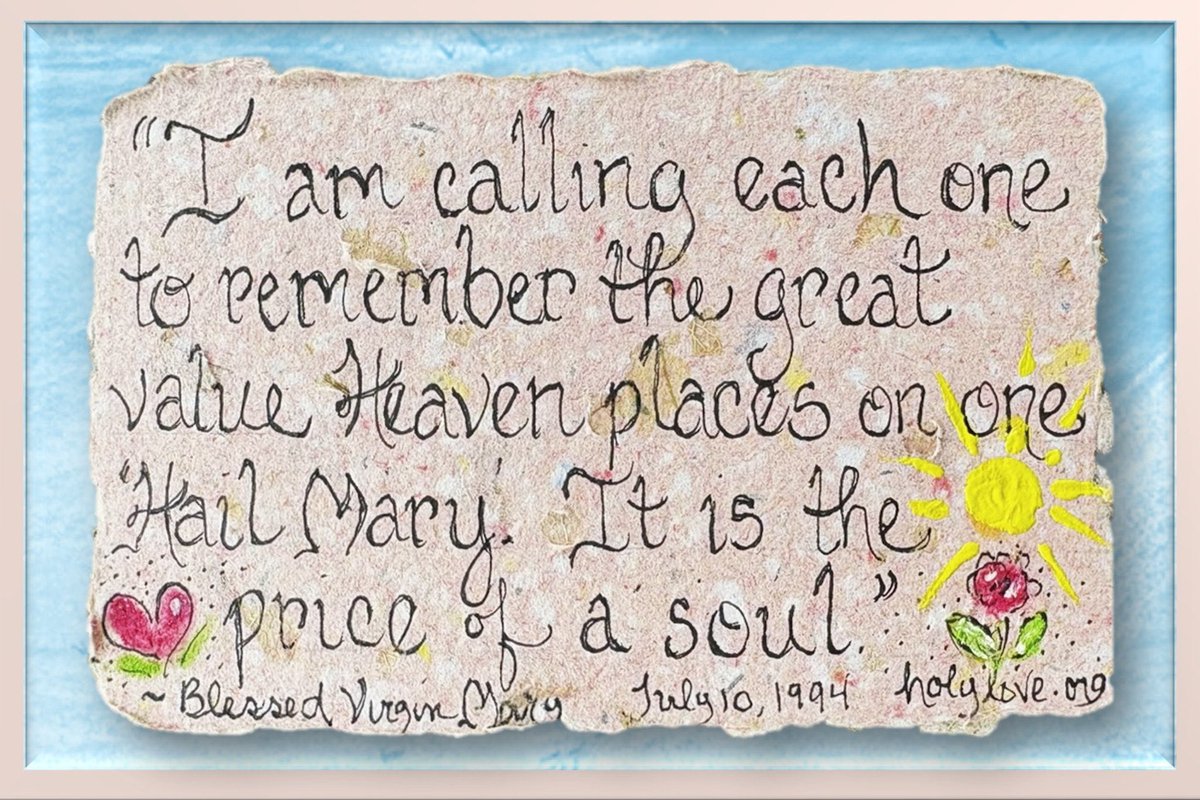 "I am calling each one
to remember the great
value Heaven places on one
'Hail Mary'. It is the
price of a soul."
~ Blessed Virgin Mary July 10, 1994 holylove.org